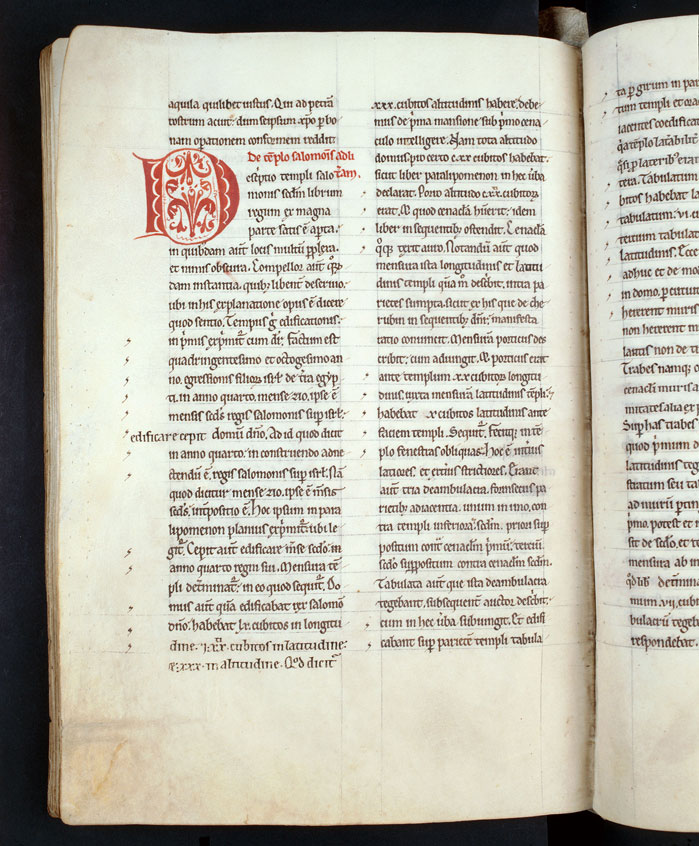 aquila quilibet iustus. Qui ad petrā
rostrum acuit. dum seipsum xp̄o p̄ bo
nam operationem conformem reddit.
De tēplo salomōis ad li
t̄am.
Descriptio templi salo
monis sc̄dm librum
regum ex magna
parte satis ē ap̄ta.
in quibusdam aut̄ locis multū p̄plexa.
et nimis obscura. Compellor aut̄
dam instantia. quib; libent̄ deseruio.
ubi in his explanatione opus ē dicere
quod sentio. Tempus g̊ edificationis.
in p̄mis exp̄mit̄ cum dr̄. factum est
quadringentesimo et octogesimo an
no. egressionis filioꝝ isrl̄ de t̄ra egyp
ti. in anno quarto. mense zio. ipse ē
mensis sc̄ds. regis salomonis sup̄ isrl̄.
edificare cepit domū dn̄o. Ad id quod dicit̄
in anno quarto. in construendo adne
ctendū ē. regis salomonis sup̄ isrl̄.
quod dicitur mense zio. ipse ē m̄sis
sc̄ds. int̄positio ē. Hoc ipsum in para
lipomenon planius exp̄mit̄. ubi le
git̄. Cepit aut̄ edificare m̄se sc̄do. in
anno quarto regni sui. Mensura tē
pli det̄minat̄. in eo quod sequit̄. Do
mus aut̄ quā edificabat rex salomō
dn̄o. habebat lx. cubitos in longitu
dine. xx. cubitos in latitudine.
xxx. in altitudine. Quod dicit̄
xxx. cubitos altitudinis habere. debe
mus de p̄ma mansione sub p̄mo cena
culo intelligere. Nam tota altitudo
domus p̄ certo cxx cubitos habebat.
sicut liber paralipomenon in hec ūba
declarat. Porro altitudo cxx. cubitoꝝ
erat. Et quod cenac̄la h̄uerit. idem
liber in sequentib; ostendit. Cenac̄la
q̊q; texit auro. Notandū aut̄ quod
mensura ista longitudinis et latitu
dinis templi quā m̊ desc̄bit. intra pa
rietes sumpta. sicut ex his que de che
rubin in sequentib; dicit̄. manifesta
ratio conuincit. Mensurā porticus des
cribit. cum adiungit. Et porticus erat
ante templum xx cubitoꝝ longitu
dinis. iuxta mensurā latitudinis tēpli.
habebat x cubitos latitudinis ante
faciem templi. Sequit̄. fecitq; in tē
plo fenestras obliquas. Hoc ē intius
latiores. et ext̄ius strictiores. Erant
aut̄ tria deambulac̄ra. forinsecus pa
rietib; adiacentia. unum in imo. con
tra templi inferiora. sc̄dm. priori sup̄
positum cont̄ cenac̄lm p̄mū. terciū.
sc̄do sup̄positum contra cenac̄lm sc̄dm.
Tabulata aut̄ que ista deambulacra
tegebant. subsequent̄ auctor desc̄bit.
cum in hec ūba subiungit. Et edifi
cabant sup̄ parietē templi tabula
ta p̄ girum in par
tum templi et ora
iacentes coedificat
teta. Tabulatum
bitos habebat la
tabulatum. vi. c
tercium tabulat
latitudinis. Ecce
adhuc et de mo
in domo. p̄ circuitū
hererent muris
non hererent m
lautis non de ti
Trabes namq;
cenacli muris a
mitates alia ex p
Sup̄ has trabes
quod p̄mum d
latitudinis teg
stratum seu tab
ad murū p̄tin
p̄mo. potest et n
sit de sc̄do. et te
mensura ab in
det̄min
mum. vii. cubit
bulacrū tegeba
respondebat.